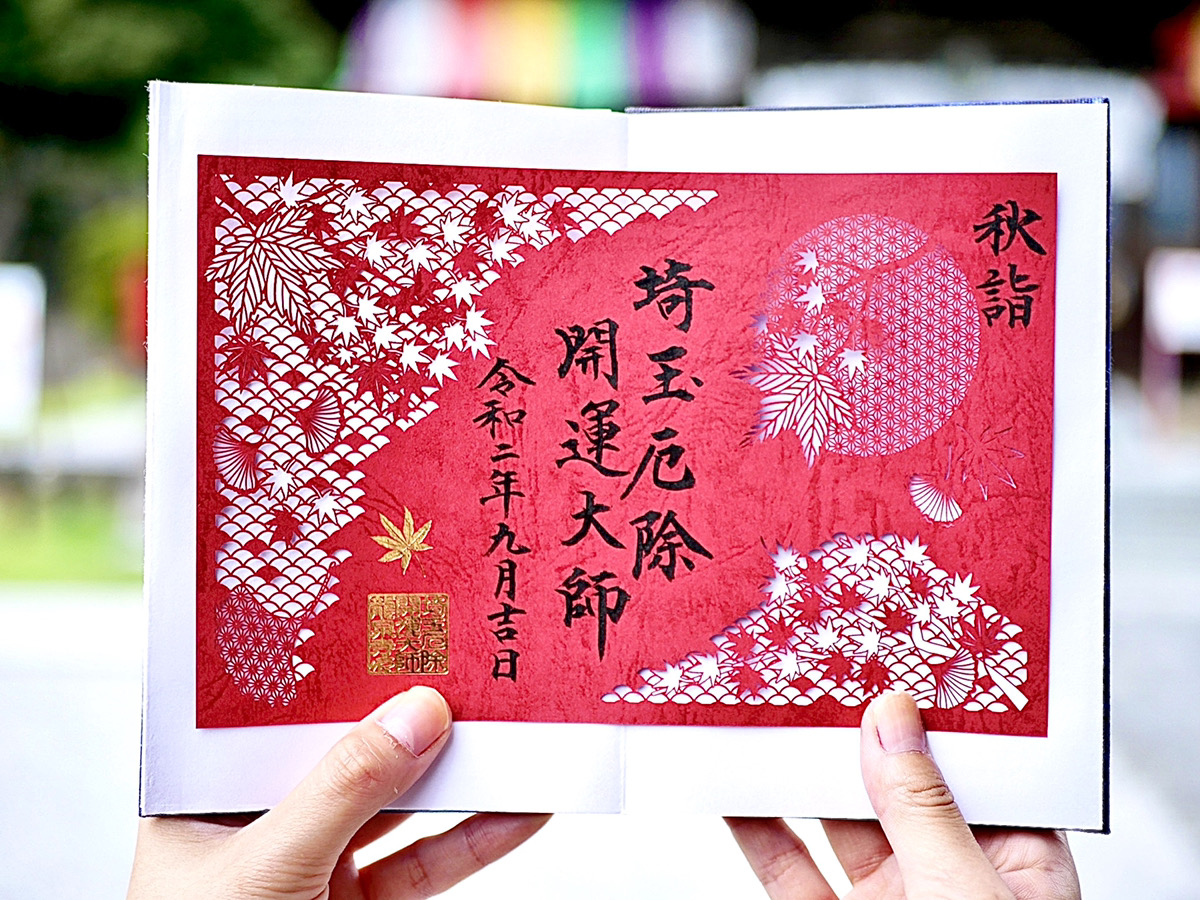 秋詣
埼玉厄除
開運大師
令和二年九月吉日